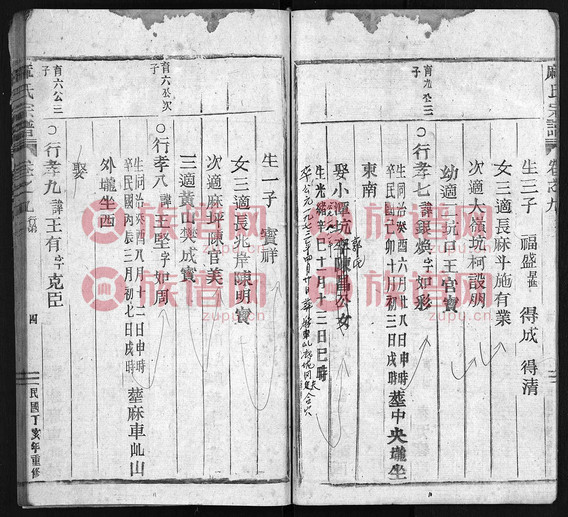 麻氏宗譜
卷之九
生三子 福盛 得成 得清
女三適長麻斗施有業
次適大嶺坑柯設炳
幼適坑口王官寶
育九公三子
行孝七諱銀煥字如彩
生同治癸酉六月廿八日申時
卒民國己卯月初三日戌時
塟中央壠坐東南
娶小潭坑李陳昌公女
生光緒辛巳十月十二日巳時
生一子 寶祥
女三適長兆岸陳明寶
次適麻坪陳官美
三適黃山樊成寶
育六公次子
行孝八諱王堅字如周
生同治癸酉八月二日申時
卒民國丙辰三月初七日戌時
塟麻車乢山外壠坐西
娶
育六公三子
行孝九諱王有字克臣
麻氏宗譜
卷之九
行弟
四
民國丁亥年重修
族谱网
zupu.cn